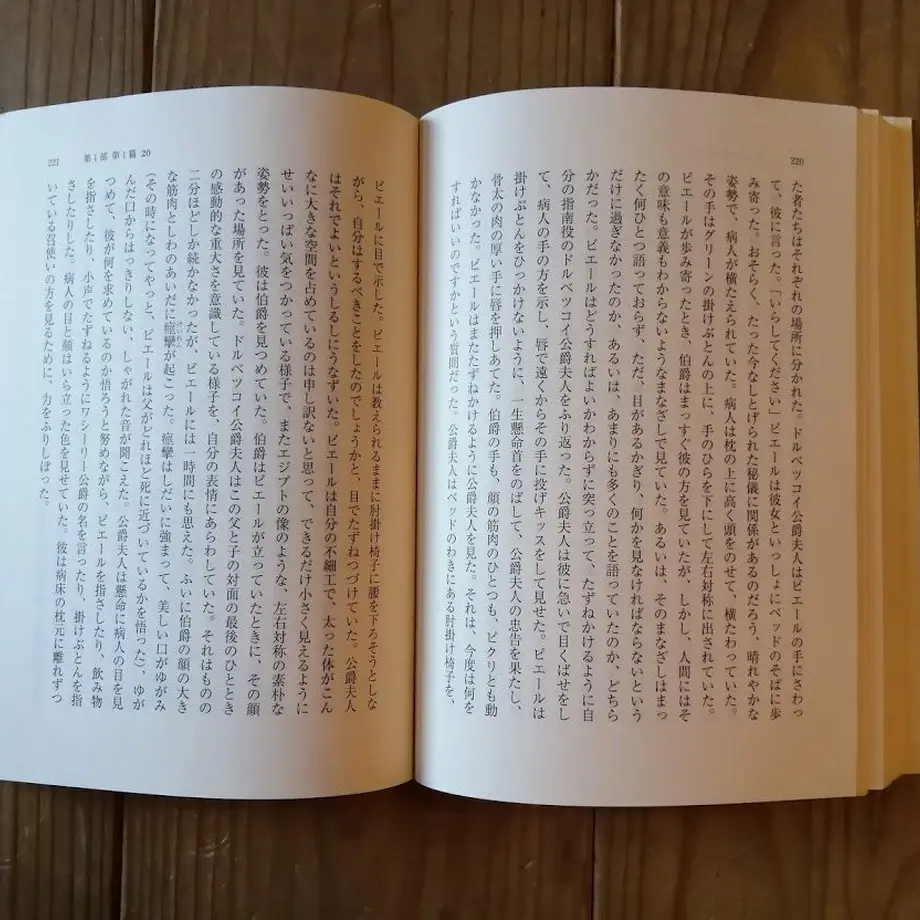 220
た者たちはそれぞれの場所に分かれた。ドルベツコイ公爵夫人はピエールの手にさわっ
て、彼に言った。「いらしてください」ピエールは彼女といっしょにベッドのそばに歩
み寄った。おそらく、たった今なしとげられた秘儀に関係があるのだろう、晴れやかな
姿勢で、病人が横たえられていた。病人は枕の上に高く頭をのせて、横たわっていた。
その手はグリーンの掛けぶとんの上に、手のひらを下にして左右対称に出されていた。
ピエールが歩み寄ったとき、伯爵はまっすぐ彼の方を見ていたが、しかし、人間にはそ
の意味も意義もわからないようなまなざしで見ていた。あるいは、そのまなざしはまっ
たく何ひとつ語っておらず、ただ、目があるかぎり、何かを見なければならないという
だけに過ぎなかったのか、あるいは、あまりにも多くのことを語っていたのか、どちら
かだった。ピエールはどうすればよいかわからずに突っ立って、たずねかけるように自
分の指南役のドルベツコイ公爵夫人をふり返った。公爵夫人は彼に急いで目くばせをし
て、病人の手の方を示し、唇で遠くからその手に投げキッスをして見せた。ピエールは
掛けぶとんをひっかけないように、一生懸命首をのばして、公爵夫人の忠告を果たし、
骨太の肉の厚い手に唇を押しあてた。伯爵の手も、顔の筋肉のひとつも、ピクリとも動
かなかった。ピエールはまたたずねかけるように公爵夫人を見て、それは、今度は何を
すればいいのですかという質問だった。公爵夫人はベッドのわきにある肘掛け椅子を、
221
第1部 第1篇 20
ピエールに目で示した。ピエールは教えられるままに肘掛け椅子に腰を下ろそうとしな
がら、自分はするべきことをしたのでしょうかと、目でたずねつづけていた。公爵夫人
はそれでよいというしるしにうなずいた。ピエールは自分の不細工で、太った体がこん
なに大きな空間を占めているのは申し訳ないと思って、できるだけ小さく見えるように
せいいっぱい気をつかっている様子で、またエジプトの像のような、左右対称の素朴な
姿勢をとった。彼は伯爵を見つめていた。伯爵はピエールが立っていたときに、その顔
があった場所を見ていた。ドルベツコイ公爵夫人はこの父と子の対面の最後のひととき
の感動的な重大さを意識している様子を、自分の表情にあらわしていた。それはものの
二分ほどしか続かなかったが、ピエールには一時間にも思えた。ふいに伯爵の顔の大き
な筋肉としわのあいだに痙攣が起こった。痙攣はしだいに強まって、美しい口がゆがみ
(その時になってやっと、ピエールは父がどれほど死に近づいているかを悟った)、ゆが
んだ口からはっきりしない、しゃがれた音が聞こえた。公爵夫人は懸命に病人の目を見
つめて、彼が何を求めているのか悟ろうと努めながら、ピエールを指さしたり、飲み物
を指さしたり、小声でたずねるようにワシーリー公爵の名を言ったり、掛けぶとんを指
さしたりした。病人の目と顔はいら立った色を見せていた。彼は病床の枕元に離れずつ
いている召使いの方を見るために、力をふりしぼった。